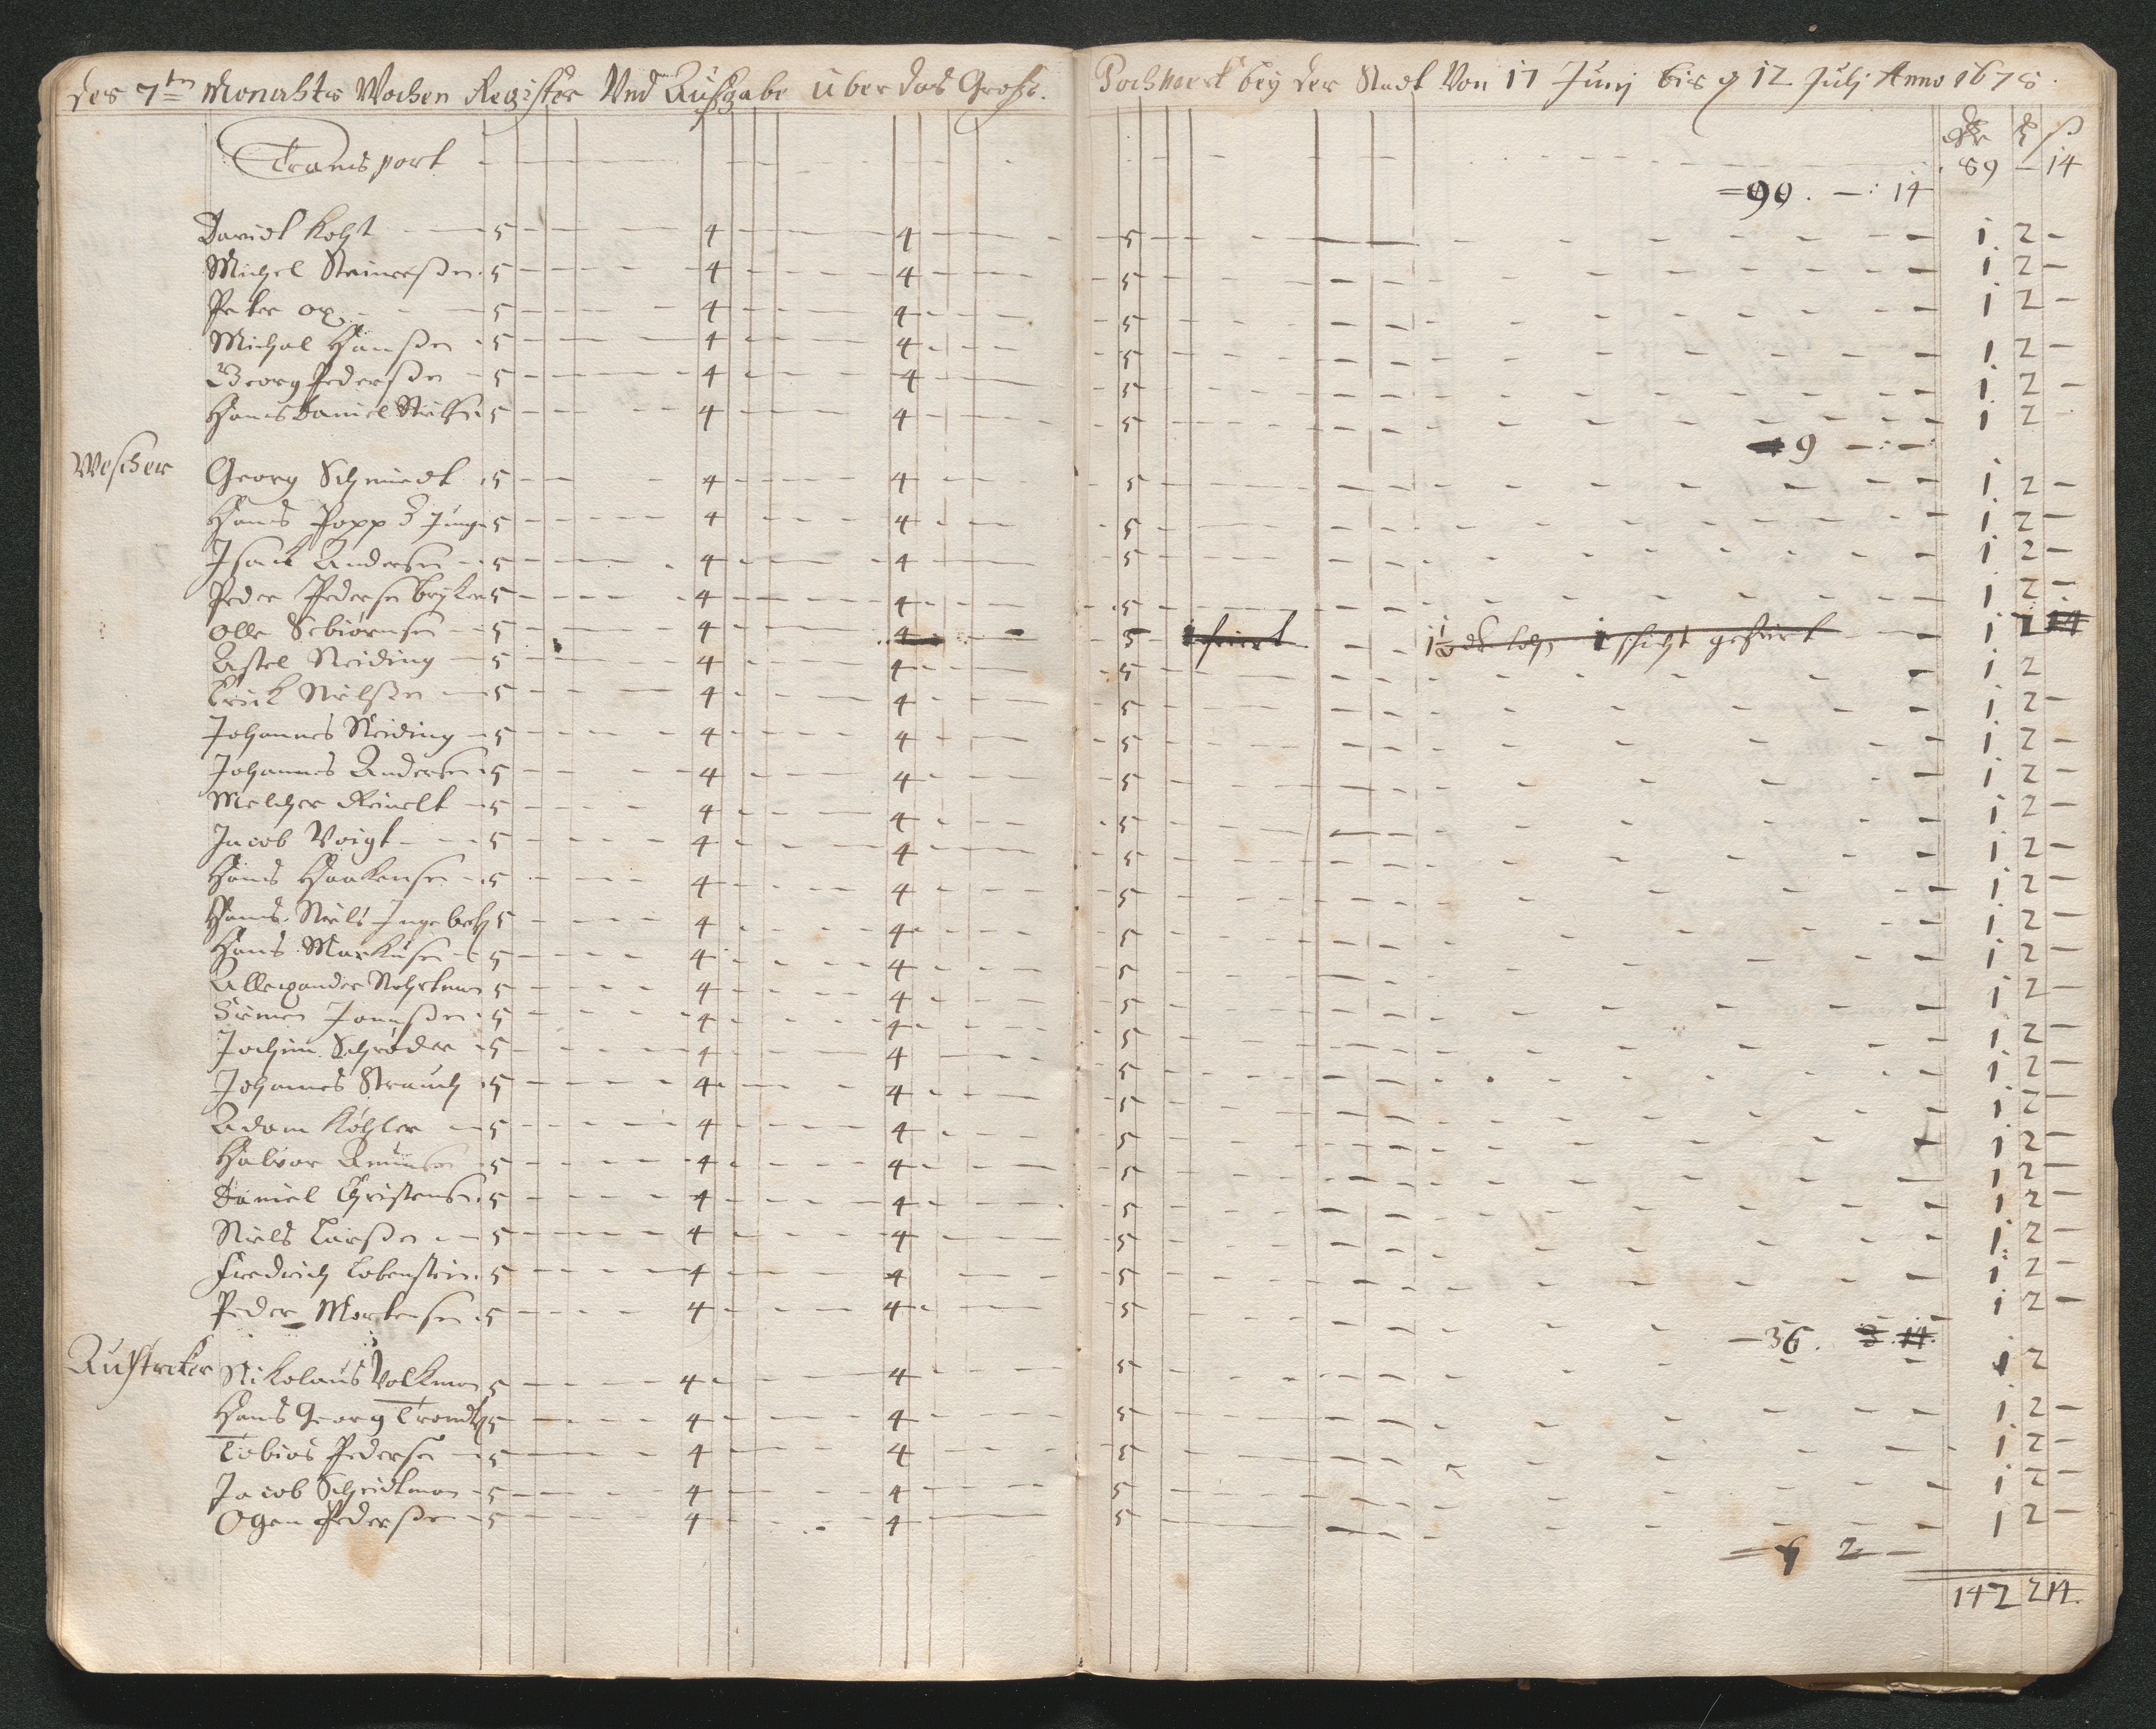 des 7ten Monahts Wochen Register Vnd Außgabe über das Große Pochwerk bey der Stadt Von 17 Junij bis 12 Julij Anno 1678.
Transport 89 – 14
=90. –: 14
Davidt Koht 5 4 4 5 1. 2 –
Michel 5 4 4 5 1 2 –
Peter ox 5 4 4 5 1 2 –
Michal Hanßen 5 4 4 5 1. 2 –
Georg Pederßen 5 4 4 5 1. 2 –
Hans Daniel 5 4 4 5 1 2
9 –:–
Wescher Georg Schmiedt 5 4 4 5 1 2 –
Hans Popp 5 4 4 5 1. 2 –
Isack Andersen 5 4 4 5 1 2 –
Peder Pedersen 5 4 4 5 1 2 –
Olle Sebiörnsen 5 4 4 5 1 feiert schicht gefeiert 1 14
Astel Neiding 5 4 4 5 1 2
Erick Nielßen 5 4 4 5 1 2 –
Johannes Neiding 5 4 4 5 1 2 –
Johannes Andersen 5 4 4 5 1 2 –
Melcher Reinelt 5 4 4 5 1 2 –
Jacob Voigt 5 4 4 5 1 2 –
Hans Haakensen 5 4 4 5 1 2 –
Hans Niels 5 4 4 5 1 2 –
Hans Markusen 5 4 4 5 1 2 –
Allexander 5 4 4 5 1 2 –
Simen Jonnßen 5 4 4 5 1. 2 –
Jochim Schröder 5 4 4 5 1 2 –
Johannes Strauch 5 4 4 5 1 2 –
Adam Köhler 5 4 4 5 1 2 –
Halvor Amunsen 5 4 4 5 1 2 –
Daniel Christensen 5 4 4 5 1 2 –
Niels Larßen 5 4 4 5 1. 2 –
Fredrich Lobenstein 5 4 4 5 1 2 –
Peder Mortensen 5 4 4 5 1 2 –
–36.
Nikolaus Volkman 5 4 4 5 1 2
Hans Georg 5 4 4 5 1. 2 –
Tobias Pedersen 5 4 4 5 1 2 –
Jacob Scheidtman 5 4 4 5 1 2 –
Ogen Pederßen 5 4 4 5 1 2 –
2 –
142 2 14.